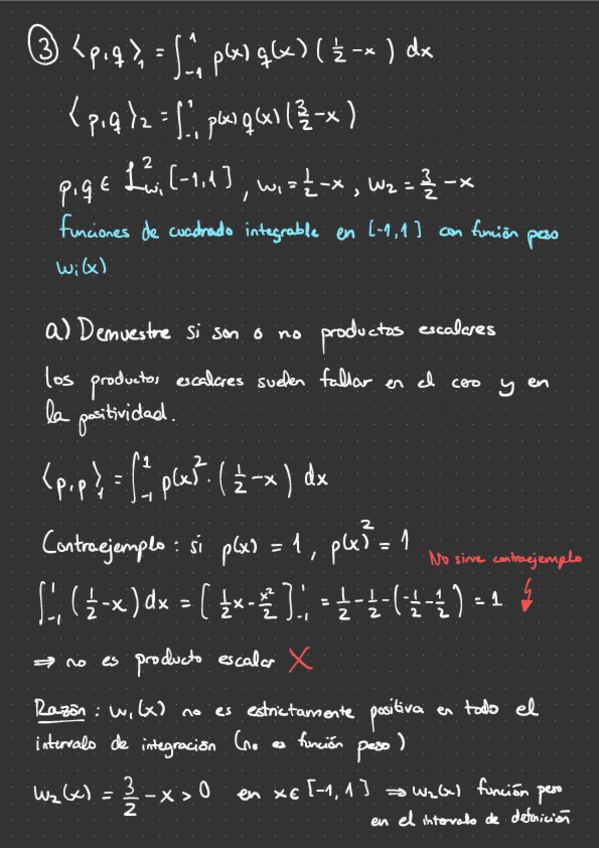 ③ ⟨p,q⟩₁ = ∫₋₁¹ p(x) q(x) (1/2 - x) dx
⟨p,q⟩₂ = ∫₋₁¹ p(x) q(x) (3/2 - x)
p,q ∈ L²_wᵢ [-1,1], w₁ = 1/2 - x, w₂ = 3/2 - x
funciones de cuadrado integrable en [-1,1] con función peso
wᵢ(x)
a) Demuestre si son o no productos escalares
los productos escalares suelen fallar en el cero y en
la positividad.
⟨p,p⟩₁ = ∫₋₁¹ p(x)² · (1/2 - x) dx
Contraejemplo: si p(x) = 1, p(x)² = 1
No sirve contraejemplo
∫₋₁¹ (1/2 - x) dx = [1/2 x - x²/2]₋₁¹ = 1/2 - 1/2 - (-1/2 - 1/2) = 1
⇒ no es producto escalar X
Razón: w₁(x) no es estrictamente positiva en todo el
intervalo de integración (no es función peso)
w₂(x) = 3/2 - x > 0 en x ∈ [-1,1] ⇒ w₂(x) función peso
en el intervalo de definición